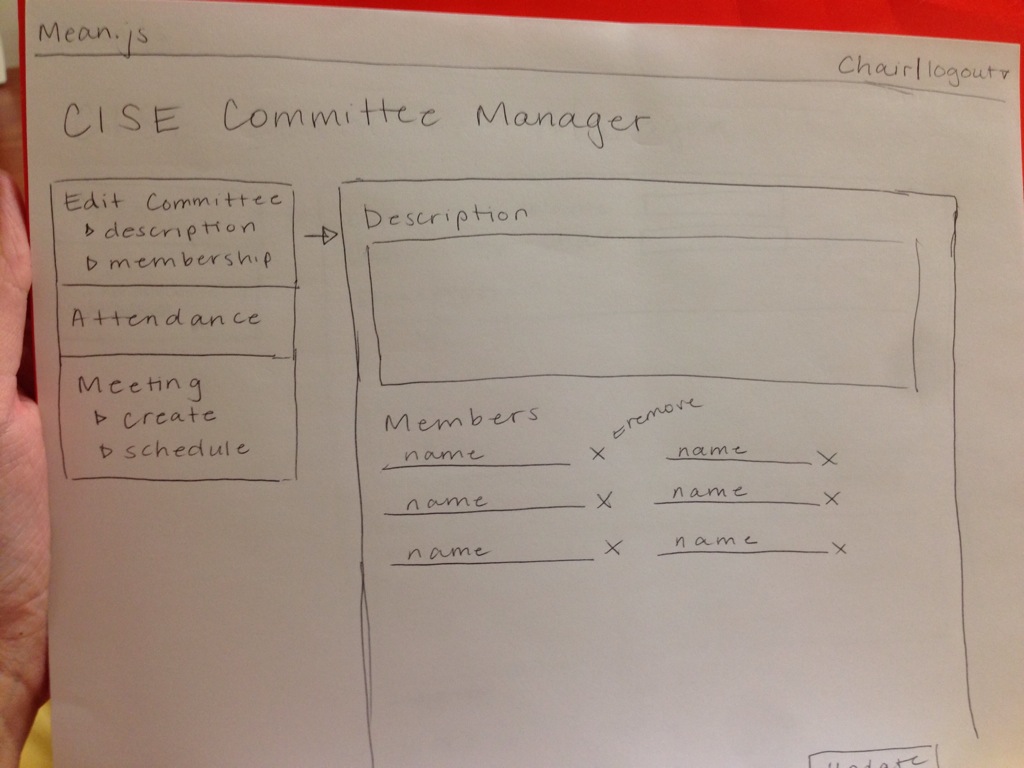 Mean.js
Chair/logout
CISE Committee Manager
Edit Committee
description
membership
Attendance
Meeting
create
schedule
Description
Members
remove
name X name X
name X name X
name X name X
Update